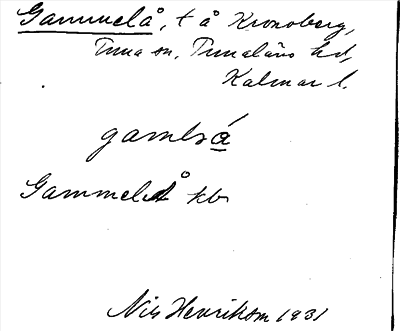 Gammelå, t å Kronoberg,
Tuna sn, Tunaläns hd,
Kalmar l.
gamlså
Gammelå kb
Nils Henrikson 1931